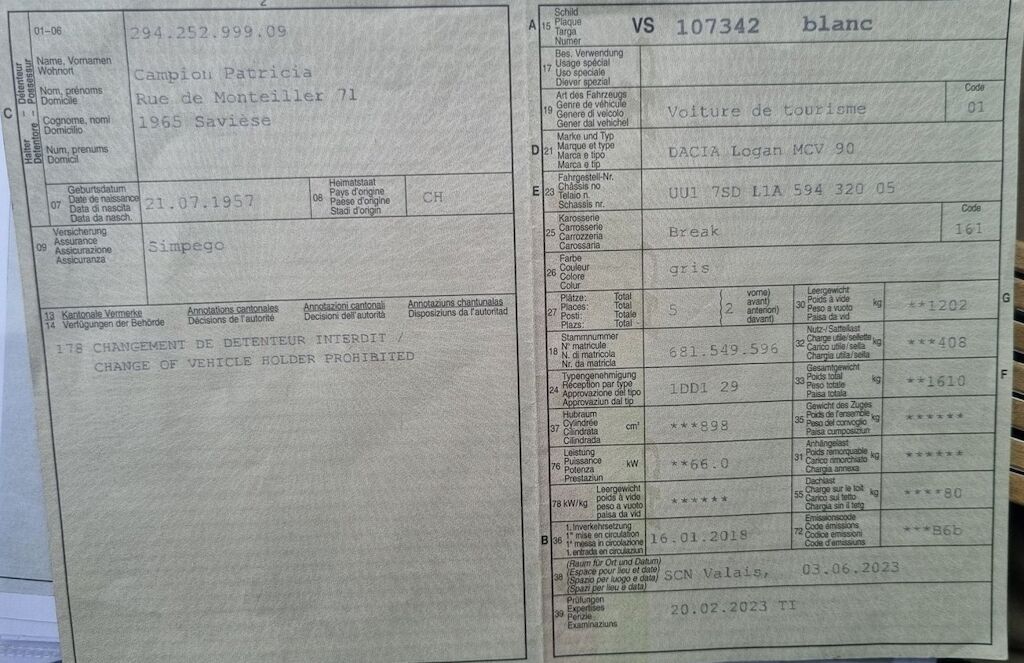 2
C
Halter – Détenteur
Detentore – Possessur
01–06
294.252.999.09
Name, Vornamen
Wohnort
Nom, prénoms
Domicile
Cognome, nomi
Domicilio
Num, prenums
Domicil
Campion Patricia
Rue de Monteiller 71
1965 Savièse
07
Geburtsdatum
Date de naissance
Data di nascita
Data da nasch.
21.07.1957
08
Heimatstaat
Pays d'origine
Paese d'origine
Stadi d'origin
CH
09
Versicherung
Assurance
Assicurazione
Assicuranza
Simpego
13 Kantonale Vermerke
14 Verfügungen der Behörde
Annotations cantonales
Décisions de l'autorité
Annotazioni cantonali
Decisioni dell'autorità
Annotaziuns chantunalas
Disposiziuns da l'autoritad
178 CHANGEMENT DE DETENTEUR INTERDIT /
CHANGE OF VEHICLE HOLDER PROHIBITED
A 15
Schild
Plaque
Targa
Numer
VS 107342 blanc
17
Bes. Verwendung
Usage spécial
Uso speciale
Diever spezial
19
Art des Fahrzeugs
Genre de véhicule
Genere di veicolo
Gener dal vehichel
Voiture de tourisme
Code
01
D 21
Marke und Typ
Marque et type
Marca e tipo
Marca e tip
DACIA Logan MCV 90
E 23
Fahrgestell-Nr.
Châssis no
Telaio n.
Schassis nr.
UU1 7SD L1A 594 320 05
25
Karosserie
Carrosserie
Carrozzeria
Carossaria
Break
Code
161
26
Farbe
Couleur
Colore
Colur
gris
27
Plätze: Total
Places: Total
Posti: Totale
Plazs: Total
5
2
vorne)
avant)
anteriori)
davant)
30
Leergewicht
Poids à vide
Peso a vuoto
Paisa da vid
kg
**1202
G
18
Stammnummer
N° matricule
N. di matricola
Nr. da matricla
681.549.596
32
Nutz-/Sattellast
Charge utile/sellette
Carico utile/sella
Chargia utila/sella
kg
***408
24
Typengenehmigung
Réception par type
Approvazione del tipo
Approvaziun dal tip
1DD1 29
33
Gesamtgewicht
Poids total
Peso totale
Paisa totala
kg
**1610
F
37
Hubraum
Cylindrée
Cilindrata
Cilindrada
cm³
***898
35
Gewicht des Zuges
Poids de l'ensemble
Peso del convoglio
Paisa cumposiziun
kg
******
76
Leistung
Puissance
Potenza
Prestaziun
kW
**66.0
31
Anhängelast
Poids remorquable
Carico rimorchiato
Chargia annexa
kg
******
78 kW/kg
Leergewicht
poids à vide
peso a vuoto
paisa da vid
******
55
Dachlast
Charge sur le toit
Carico sul tetto
Chargia sin il tetg
kg
****80
B 36
1. Inverkehrsetzung
1re mise en circulation
1a messa in circolazione
1. entrada en circulaziun
16.01.2018
72
Emissionscode
Code émissions
Codice emissioni
Code d'emissiuns
***B6b
38
(Raum für Ort und Datum)
(Espace pour lieu et date)
(Spazio per luogo e data)
(Spazi per lieu e data)
SCN Valais, 03.06.2023
39
Prüfungen
Expertises
Perizie
Examinaziuns
20.02.2023 TI